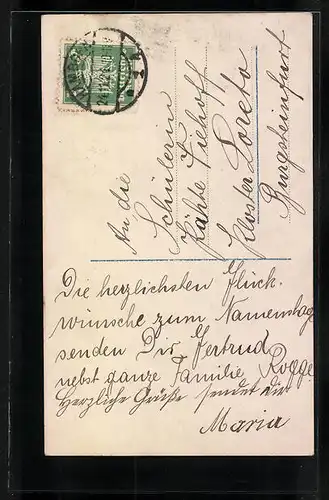 An die
Schülerin
Käthe Viehoff
Kloster Loreto
Burgsteinfurt
Die herzlichsten Glück-
wünsche zum Namenstage
senden Dir Gertrud
nebst ganze Familie Rogge
Herzliche Grüße sendet dir
Maria